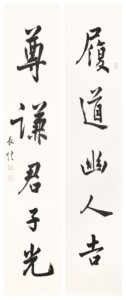 履道幽人吉
尊謙君子光